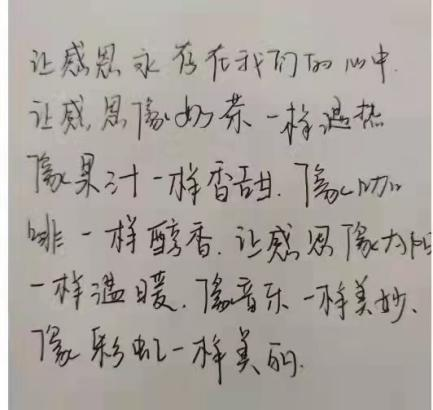 让感恩永存在我们的心中.
让感恩像奶茶一样温热
像果汁一样香甜.像咖
啡一样醇香.让感恩像太阳
一样温暖.像音乐一样美妙、
像彩虹一样美丽.